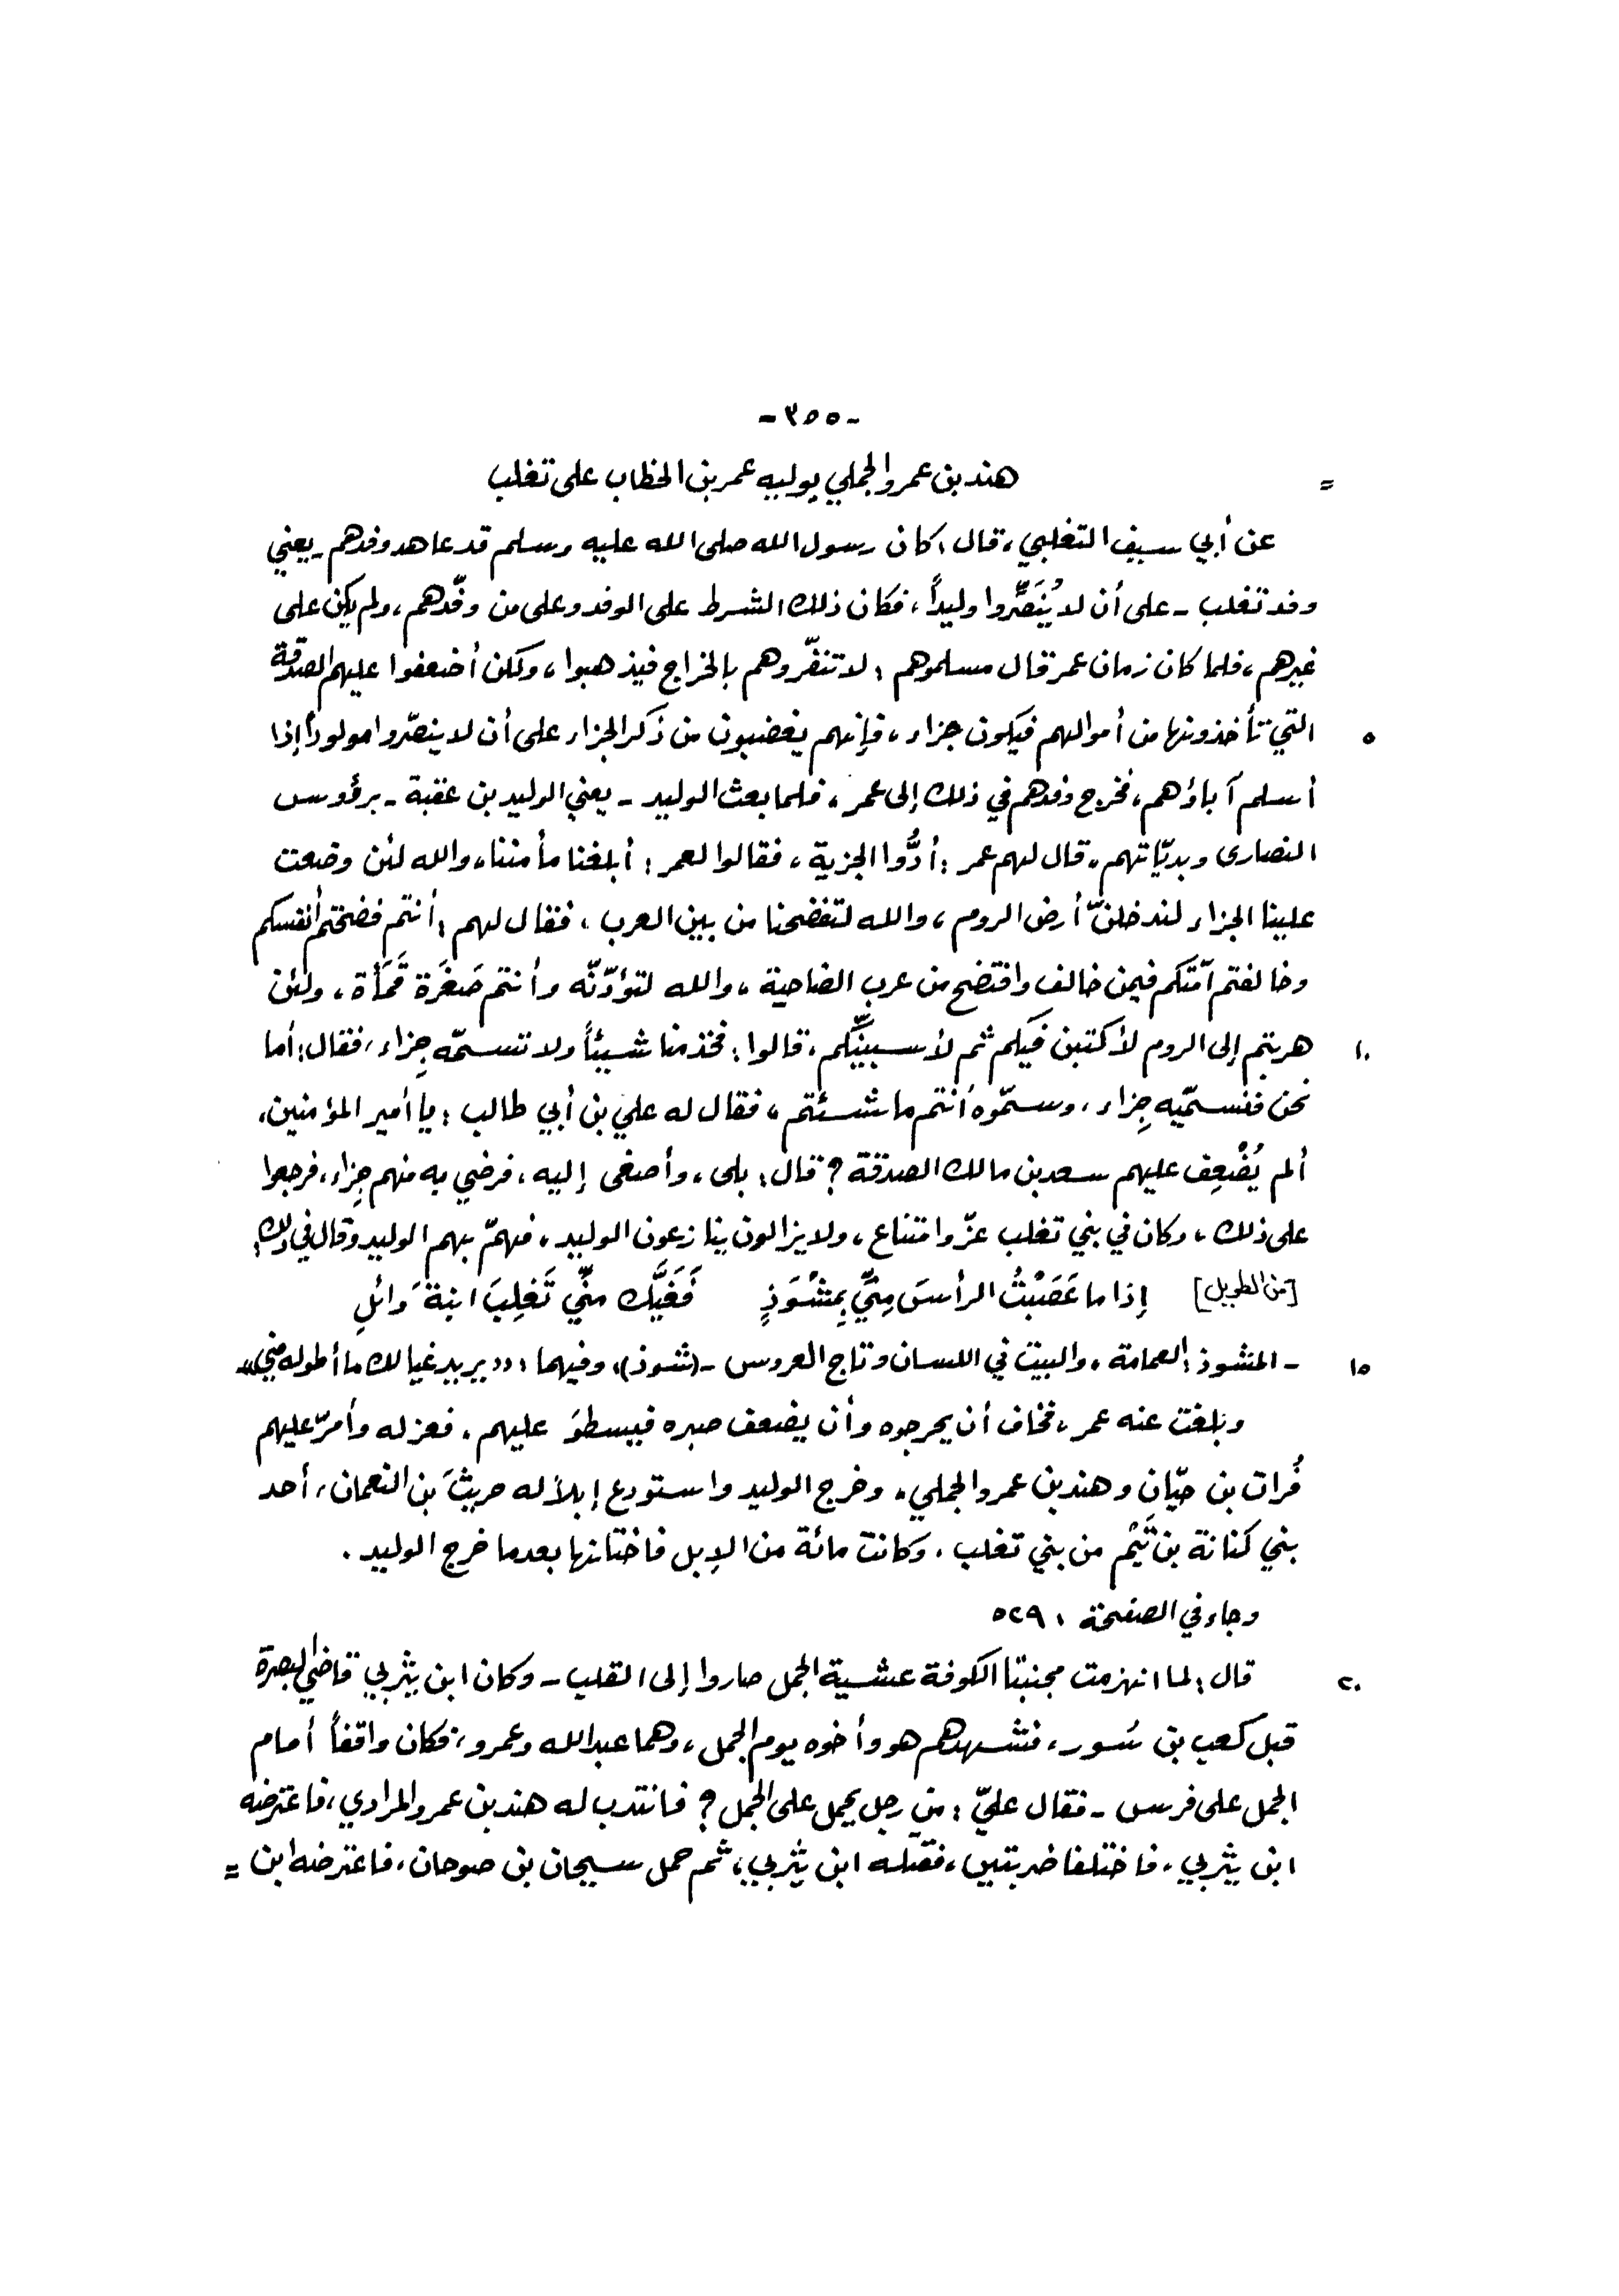 -٣٥٥-
= هند بن عمرو الجملي يوليه عمر بن الخطاب على تغلب
عن أبي سيف التغلبي، قال: كان رسول الله صلى الله عليه وسلم قد عاهد وفدهم - يعني
وفد تغلب - على أن لا يُنَصِّروا وليداً، فكان ذلك الشرط على الوفد وعلى من وفّدهم، ولم يكن على
غيرهم، فلما كان زمان عمر قال مسلموهم: لا تنفّروهم بالخراج فيذهبوا، ولكن أضعفوا عليهم الصدقة
٥ التي تأخذونها من أموالهم فيكون جزاء، فإنهم يغضبون من ذكر الجزاء على أن لا ينصّروا مولوداً إذا
أسلم آباؤهم، فخرج وفدهم في ذلك إلى عمر، فلما بعث الوليد - يعني الوليد بن عقبة - برؤوس
النصارى وبديّانتهم، قال لهم عمر: أدُّوا الجزية، فقالوا لعمر: أبلغنا مأمننا، والله لئن وضعت
علينا الجزاء لندخلنّ أرض الروم، والله لتفضحنا من بين العرب، فقال لهم: أنتم فضحتم أنفسكم
وخالفتم أمّتكم فيمن خالف وافتضح من عرب الضاحية، والله لتؤدّنّه وأنتم صَغَرَة قَمَأَة، ولئن
١٠ هربتم إلى الروم لأكتبن فيكم ثم لأسبينّكم، قالوا: فخذ منا شيئاً ولا تسمّه جِزاء، فقال: أما
نحن فنسمّيه جِزاء، وسمّوه أنتم ما شئتم، فقال له علي بن أبي طالب: يا أمير المؤمنين،
ألم يُضْعِف عليهم سعد بن مالك الصدقة؟ قال: بلى، وأصغى إليه، فرضي به منهم جِزاء، فرجعوا
على ذلك، وكان في بني تغلب عزّ وامتناع، ولا يزالون ينازعون الوليد، فهمّ بهم الوليد وقال في ذلك:
[من الطويل] إذا ما عَصَبْتُ الرأسَ مِنِّي بِمِشْوَذٍ فَغَيَّك مِنِّي تَغلِبَ ابنةَ وائلِ
١٥ - المشوذ: العمامة، والبيت في اللسان وتاج العروس - (شوذ)، وفيهما: «يريد غيا لك ما أطوله مني»،
وبلغت عنه عمر، فخاف أن يحرجوه وأن يضعف صبره فيسطوَ عليهم، فعزله وأمرّ عليهم
فُرات بن حيّان وهند بن عمرو الجملي، وخرج الوليد واستودع إبلاً له حريثَ بن النعمان، أحد
بني كنانة بن تَيْم من بني تغلب، وكانت مائة من الإبل فاختانها بعدما خرج الوليد.
وجاء في الصفحة: ٥٢٩
٢٠ قال: لما انهزمت مجنبتا الكوفة عشية الجمل صاروا إلى القلب - وكان ابن يثربي قاضي البصرة
قبل كعب بن سُور، فشهدهم هو وأخوه يوم الجمل، وهما عبد الله وعمرو، فكان واقفاً أمام
الجمل على فرس - فقال عليّ: من رجل يحمل على الجمل؟ فانتدب له هند بن عمرو المرادي، فاعترضه
ابن يثربي، فاختلفا ضربتين، فقتله ابن يثربي، ثم حمل سيحان بن صوحان، فاعترضه ابن =